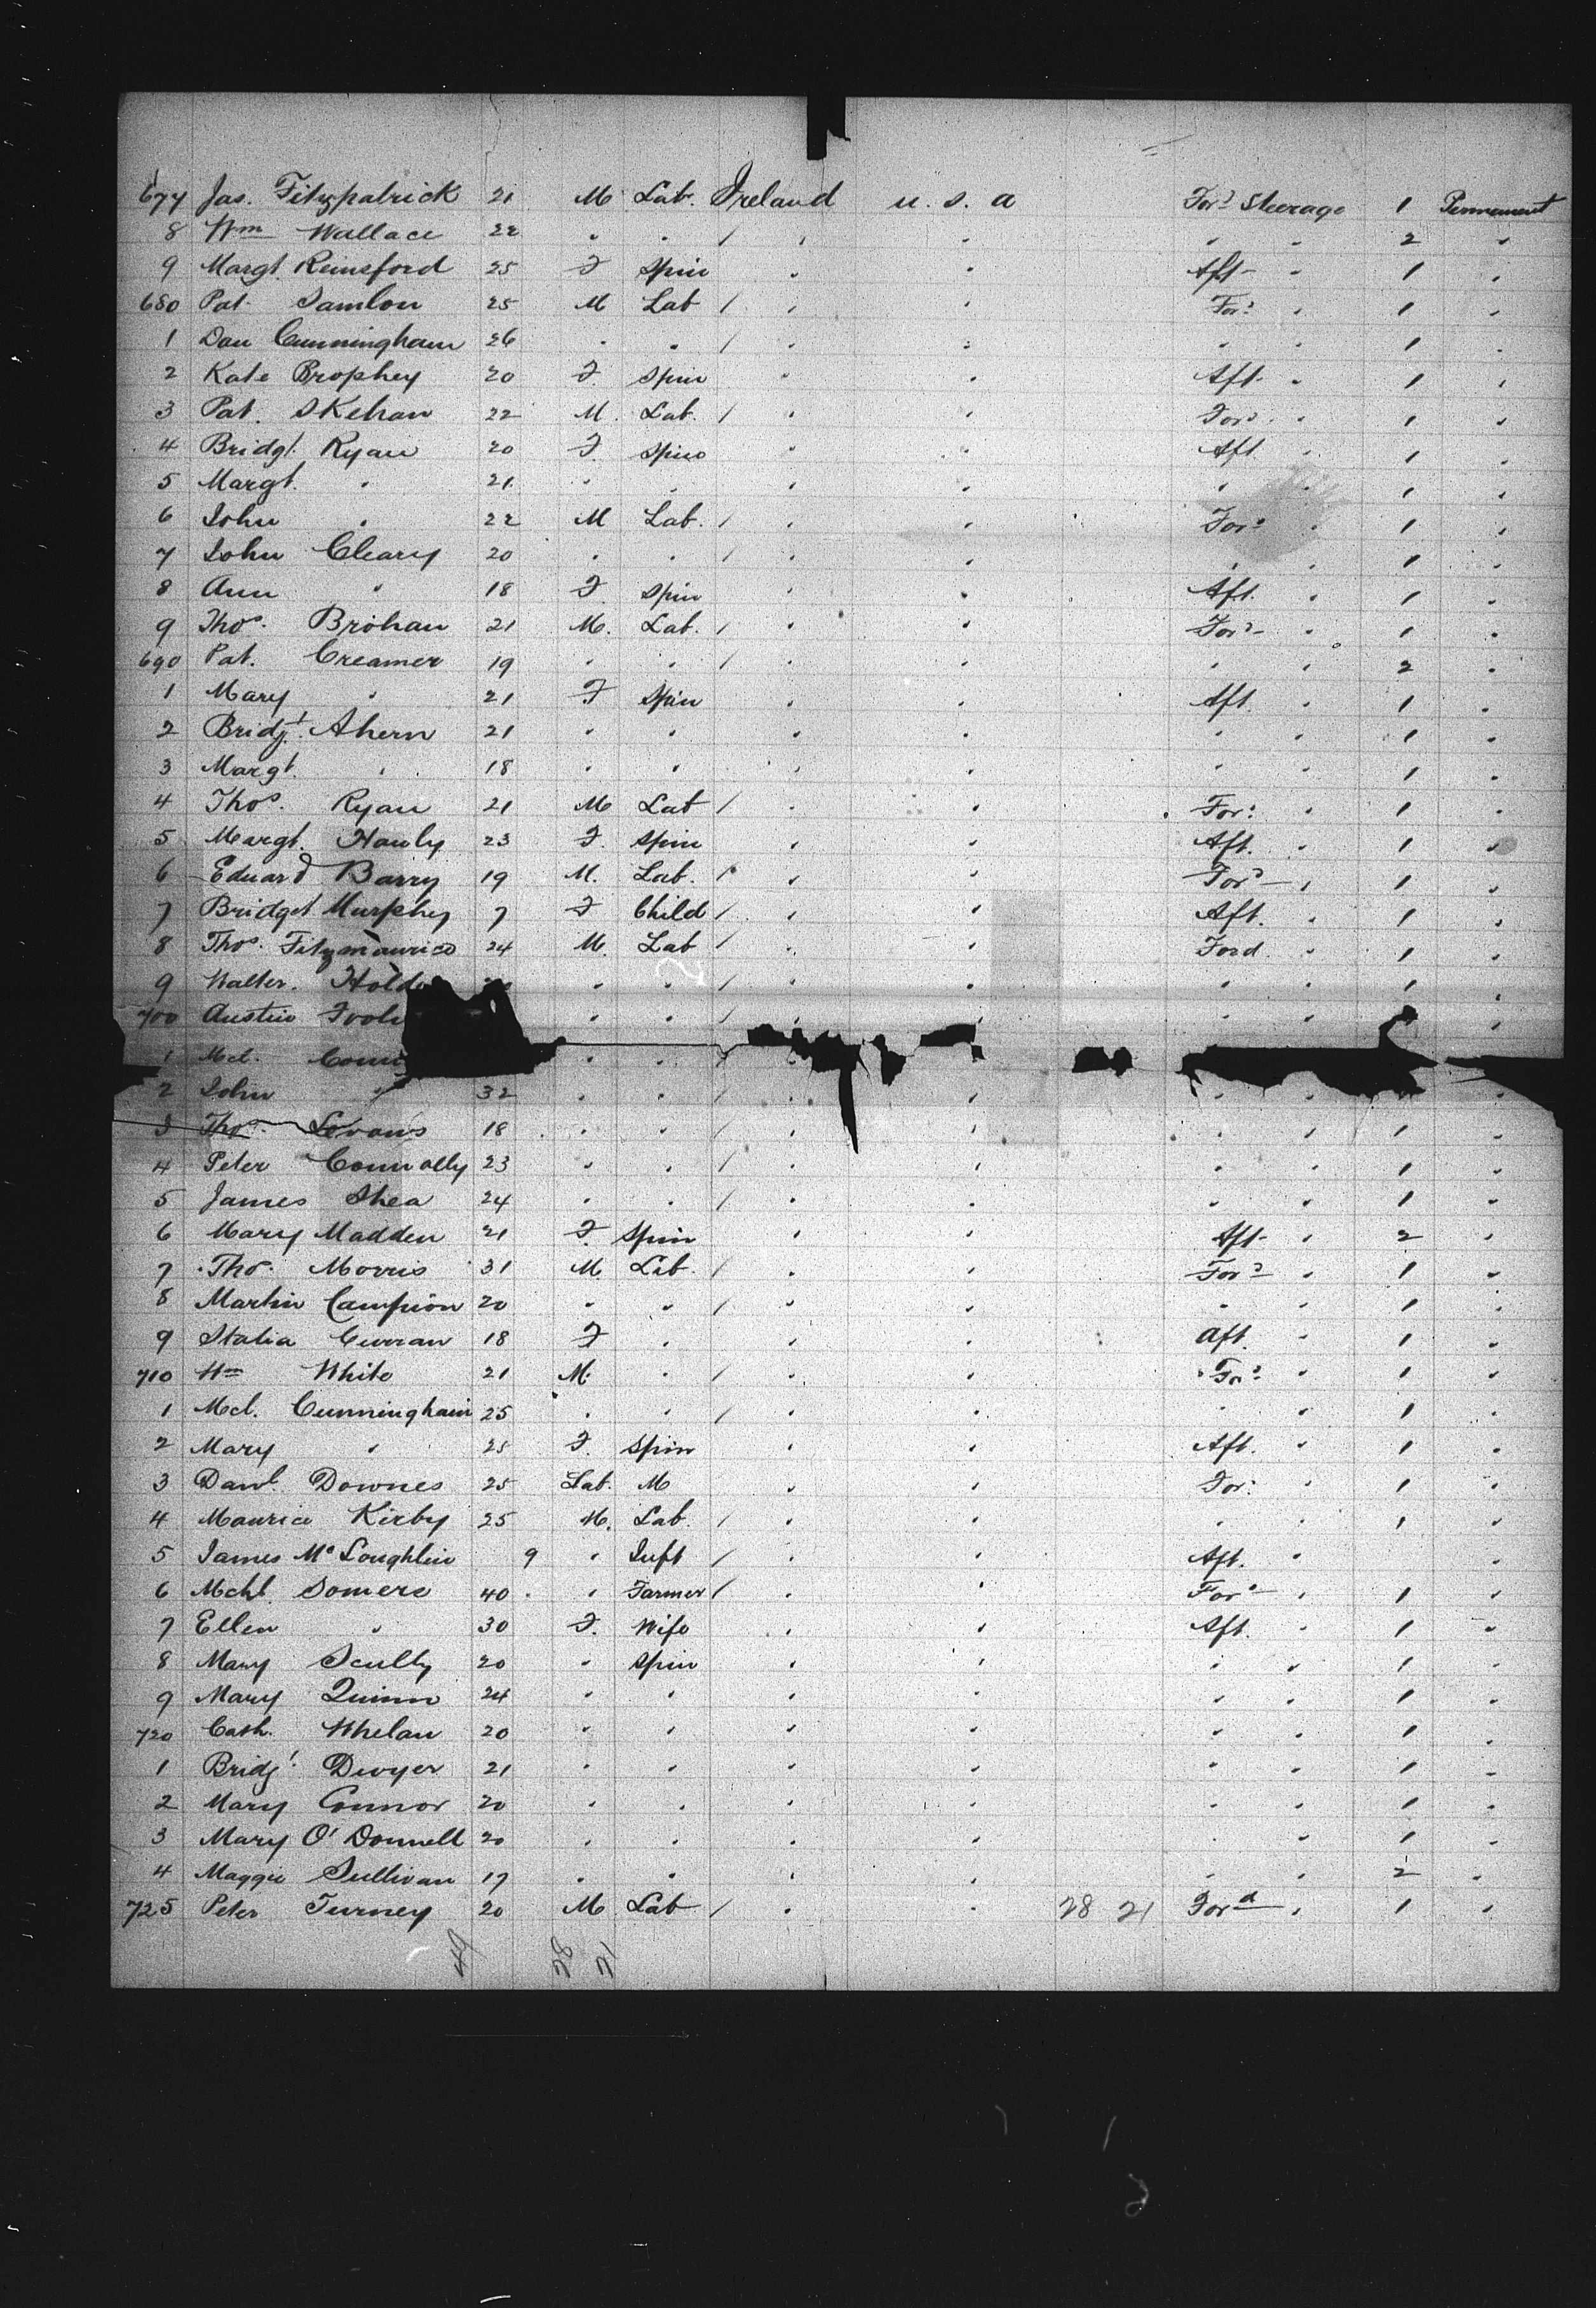 677 Jas. Fitzpatrick 21 M Lab. Ireland U. S. A For^d Steerage 1 Permanent
8 Wm Wallace 22 " " / " " " " 2 "
9 Margt. Reinsford 25 F Spin " " Aft " 1 "
680 Pat 25 M Lab / " " For^d " 1 "
1 Dan Cunningham 26 " " / " " " " 1 "
2 Kate Brophey 20 F. Spin " " Aft " 1 "
3 Pat. Skehan 22 M. Lab. / " " For^d " 1 "
4 Bridgt. Ryan 20 F. Spin " " Aft. " 1 "
5 Margt. " 21 " " " " " " 1 "
6 John " 22 M Lab. / " " For^d " 1 "
7 John Cleary 20 " " / " " " " 1 "
8 Ann " 18 F. Spin " " Aft. " 1 "
9 Thos. Brohan 21 M. Lab. / " " For^d " 1 "
690 Pat. Creamer 19 " " / " " " " 2 "
1 Mary " 21 F Spin " " Aft. " 1 "
2 Bridgt. Ahern 21 " " " " " " 1 "
3 Margt. " 18 " " " " " " 1 "
4 Thos. Ryan 21 M Lab / " " For^d " 1 "
5 Margt. Hanly 23 F. Spin " " Aft. " 1 "
6 Eduard Barry 19 M. Lab. / " " For^d " 1 "
7 Bridget Murphy 7 F Child / " " Aft. " 1 "
8 Thos. Fitzmaurice 24 M. Lab / " " Ford. " 1 "
9 Walter. Holde " " / " " " " 1 "
700 Austin " " / " " " " "
1 Mcl. " "
2 John " 32 " " / " " " " "
3 Thos. 18 " " / " " " " 1 "
4 Peter Connolly 23 " " / " " " " 1 "
5 James Shea 24 " " / " " " " 1 "
6 Mary Madden 21 F. Spin " " Aft " 2 "
7 Thos. Morris 31 M Lab. / " " For^d " 1 "
8 Martin Campion 20 " " / " " " " 1 "
9 Statia Curran 18 F " " " Aft. " 1 "
710 Wm White 21 M. " / " " For^d " 1 "
1 Mcl. Cunningham 25 " " / " " " " 1 "
2 Mary " 25 F. Spin " " Aft. " 1 "
3 Danl. Downes 25 Lab. M " " For^d " 1 "
4 Maurice Kirby 25 M. Lab. / " " " " 1 "
5 James McLoughlin 9 " Inft / " " Aft. " "
6 Mchl. Somers 40 " Farmer / " " For^d " 1 "
7 Ellen " 30 F. Wife " " Aft. " 1 "
8 Mary Scully 20 " Spin " " " " 1 "
9 Mary Quinn 24 " " " " " " 1 "
720 Cath. Whelan 20 " " " " " " 1 "
1 Bridgt. Dwyer 21 " " " " " " 1 "
2 Mary Connor 20 " " " " " " 1 "
3 Mary O'Donnell 20 " " " " " " 1 "
4 Maggie Sullivan 17 " " " " " " 2 "
725 Peter Turney 20 M Lab / " " 28 21 For^d " 1 "
49 28 21